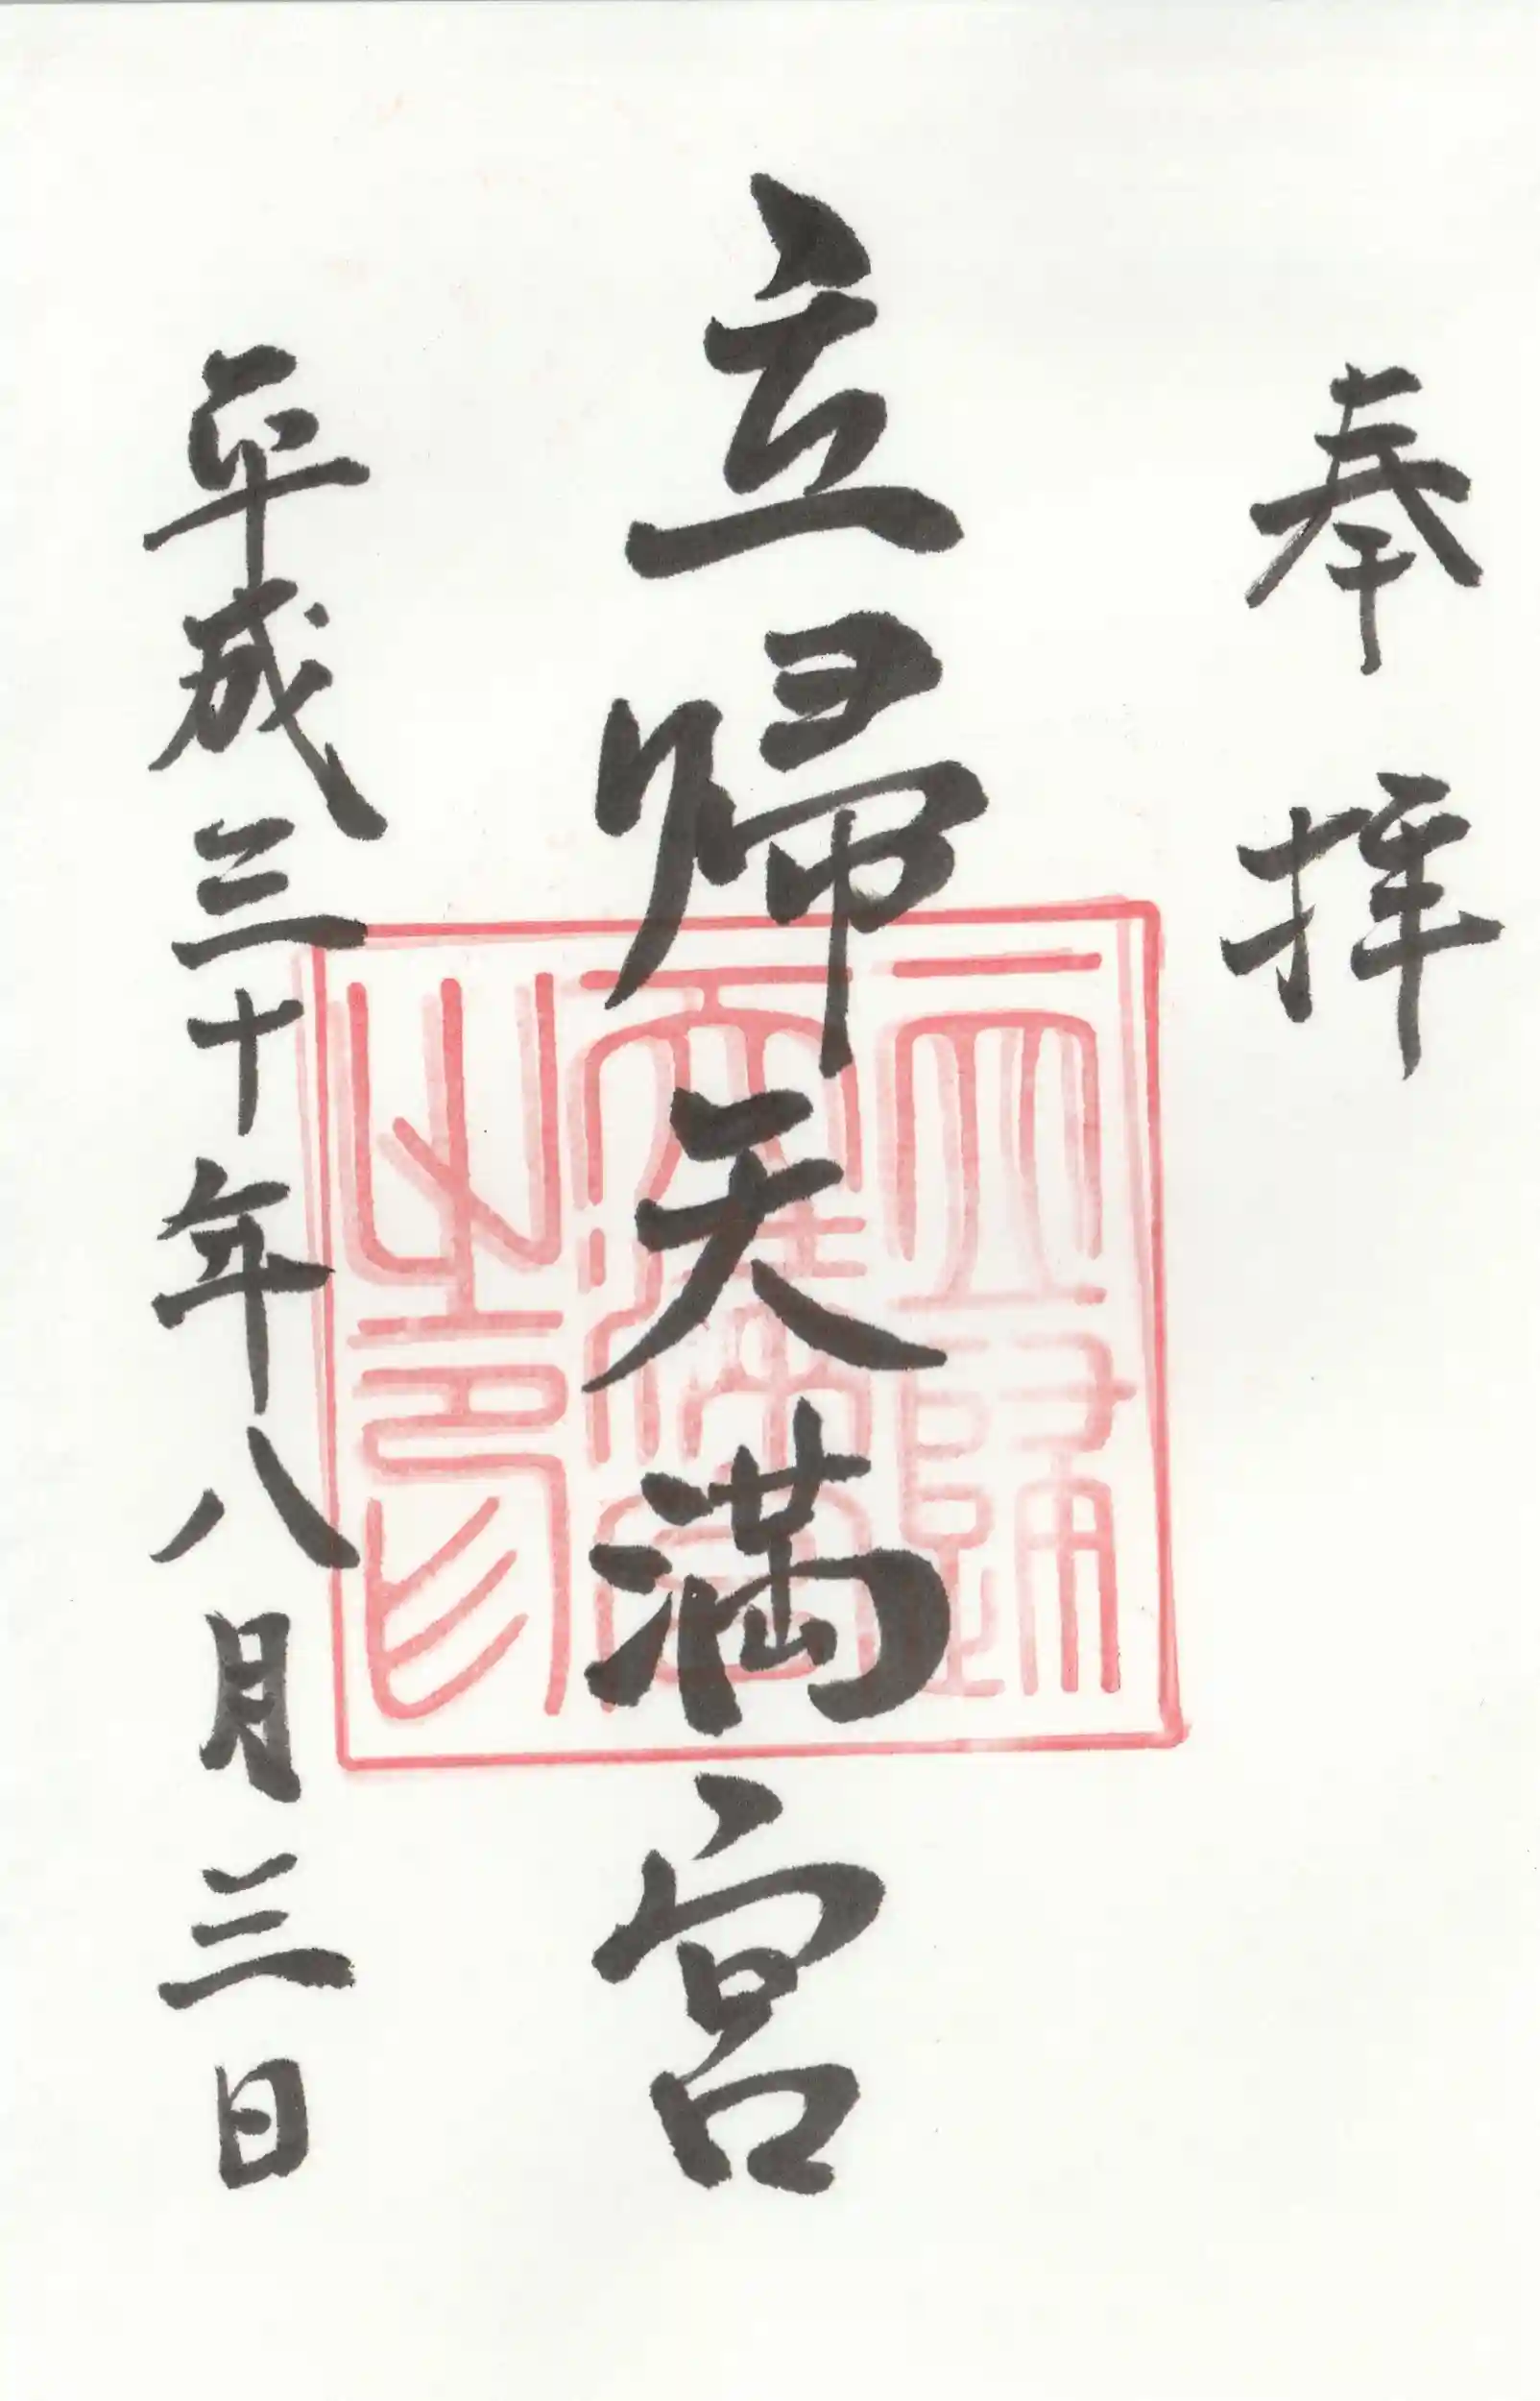 奉拝
立帰天満宮
平成三十年八月三日
立歸
天滿宮
之印